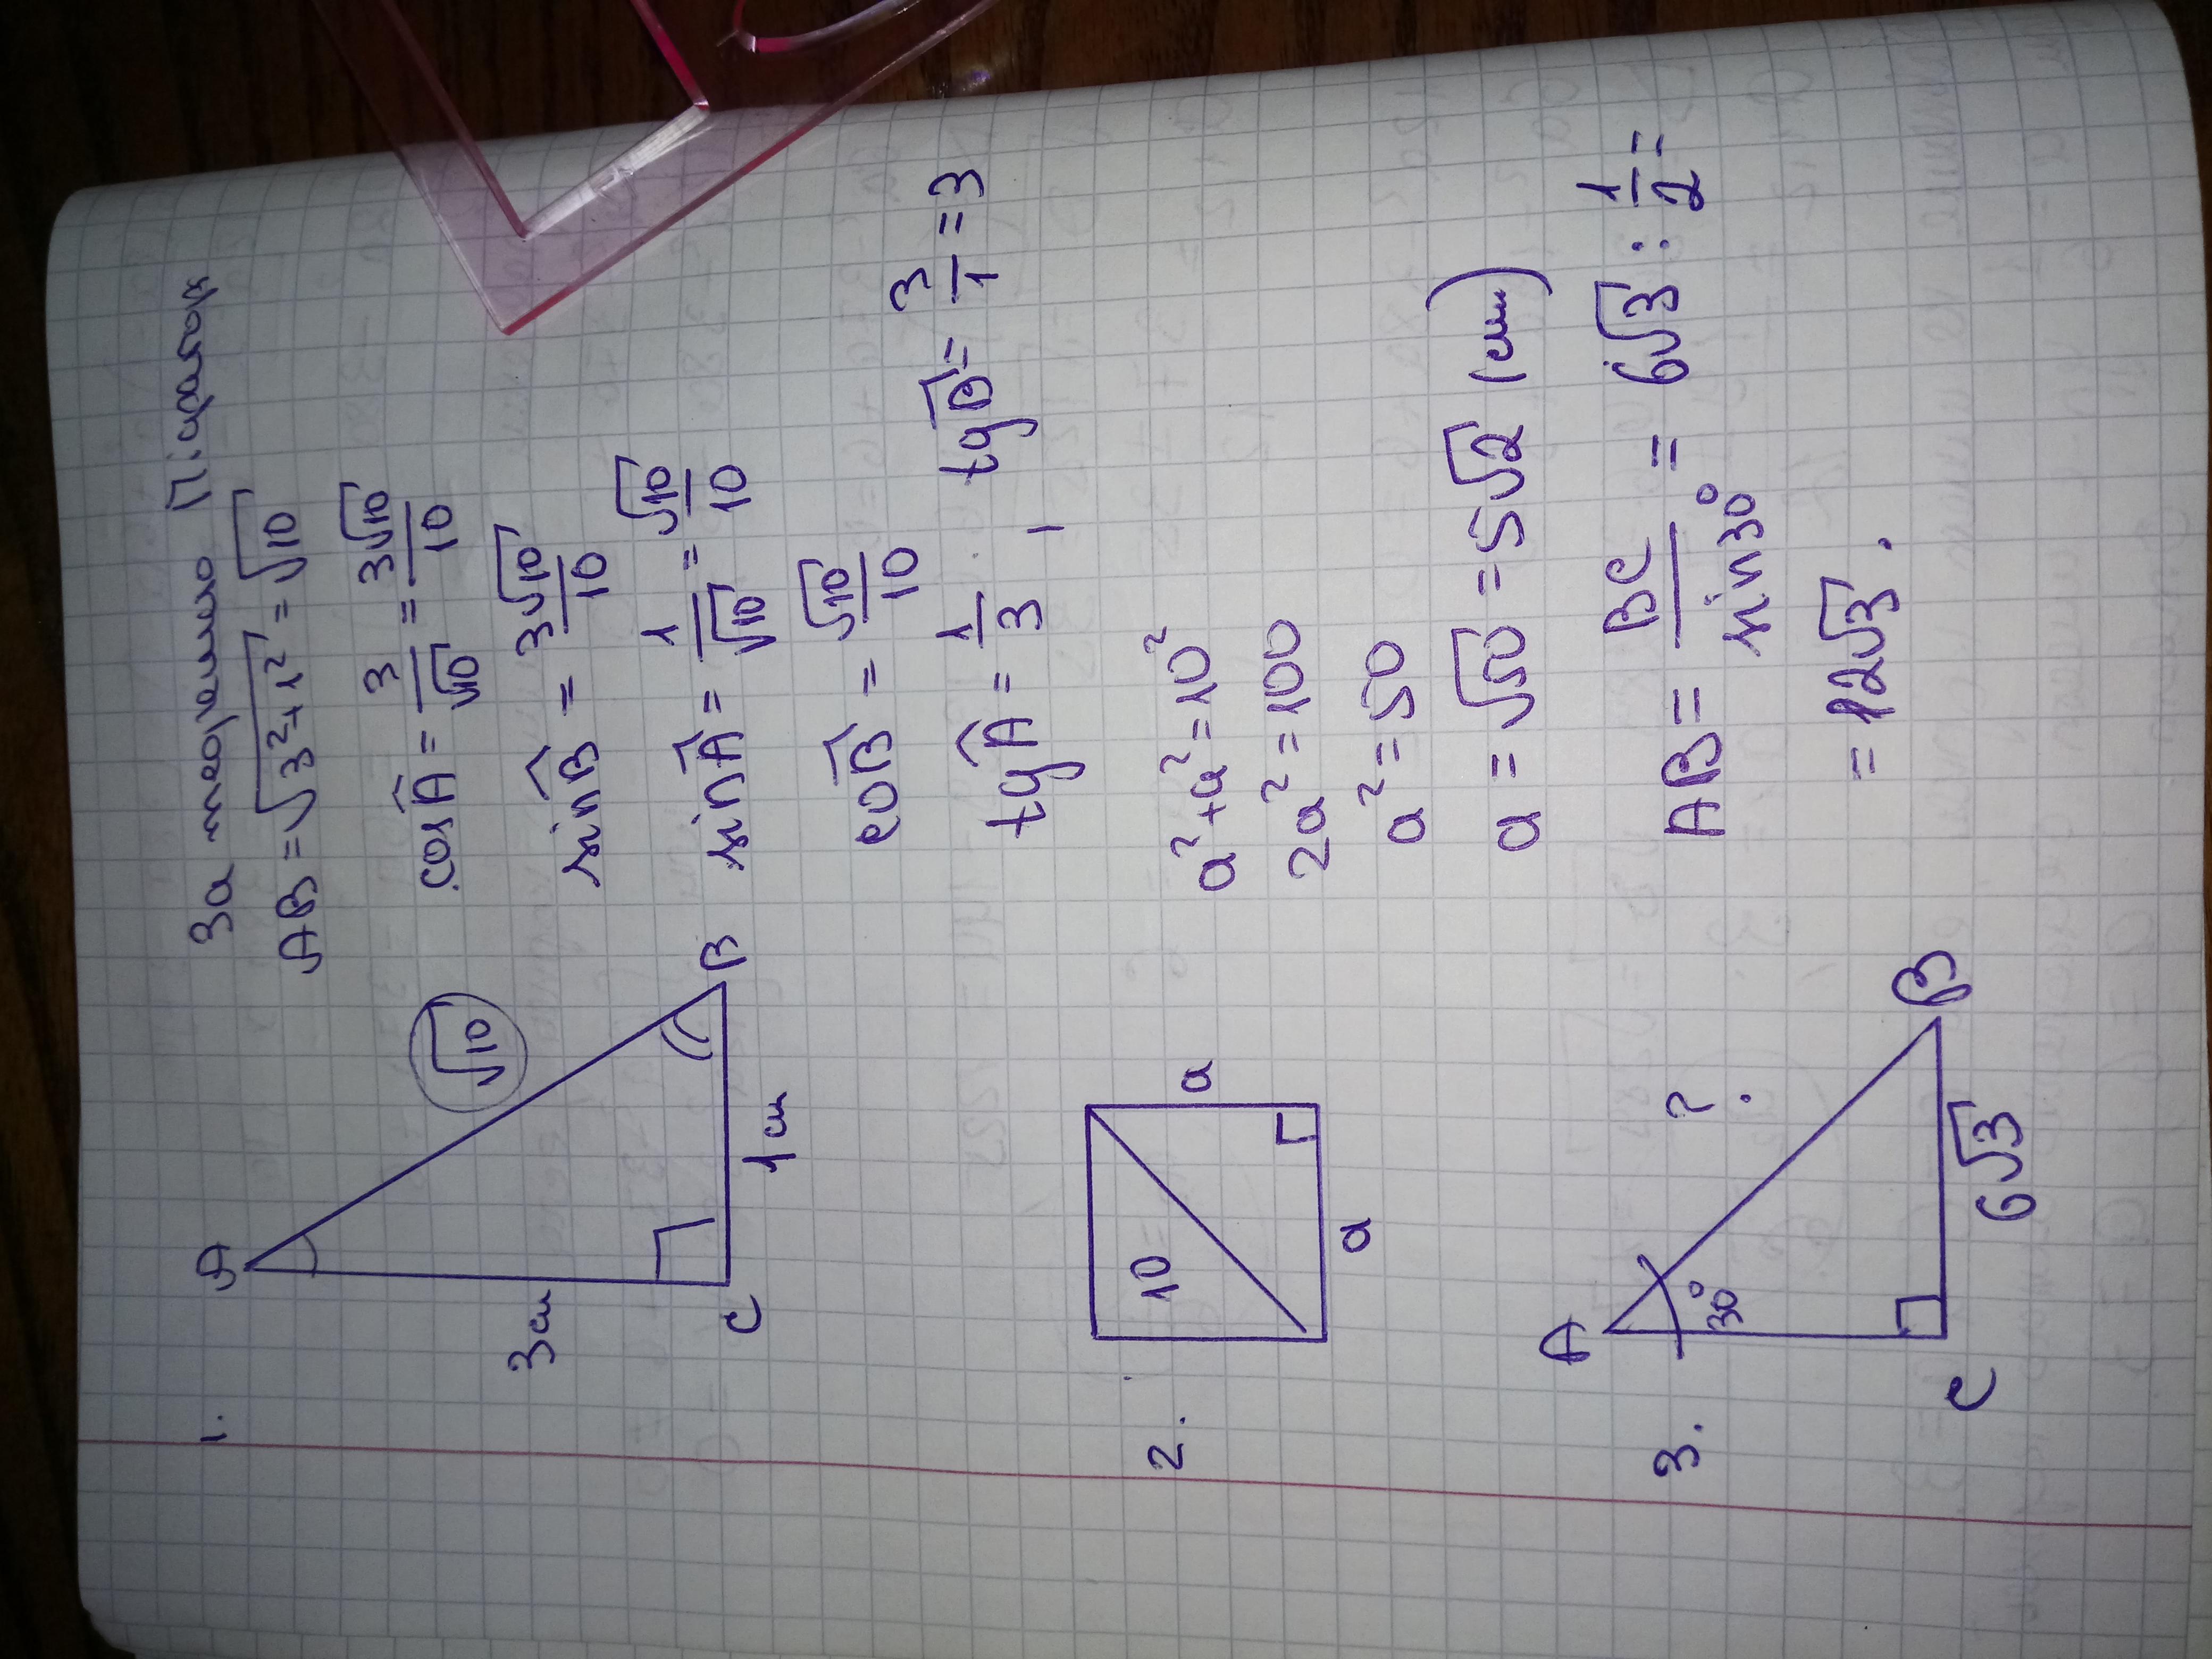 1.
За теоремою Піфагора
AB = √3²+1² = √10
A
√10
3см
C
1см
B
cos A = 3/√10 = 3√10/10
sin B = 3√10/10
sin A = 1/√10 = √10/10
co B = √10/10
tg A = 1/3, tg B = 3/1 = 3
2.
10
a
a
a² + a² = 10²
2a² = 100
a² = 50
a = √50 = 5√2 (см)
3.
A
30°
?
C
6√3
B
AB = BC/sin30° = 6√3 : 1/2 =
= 12√3.